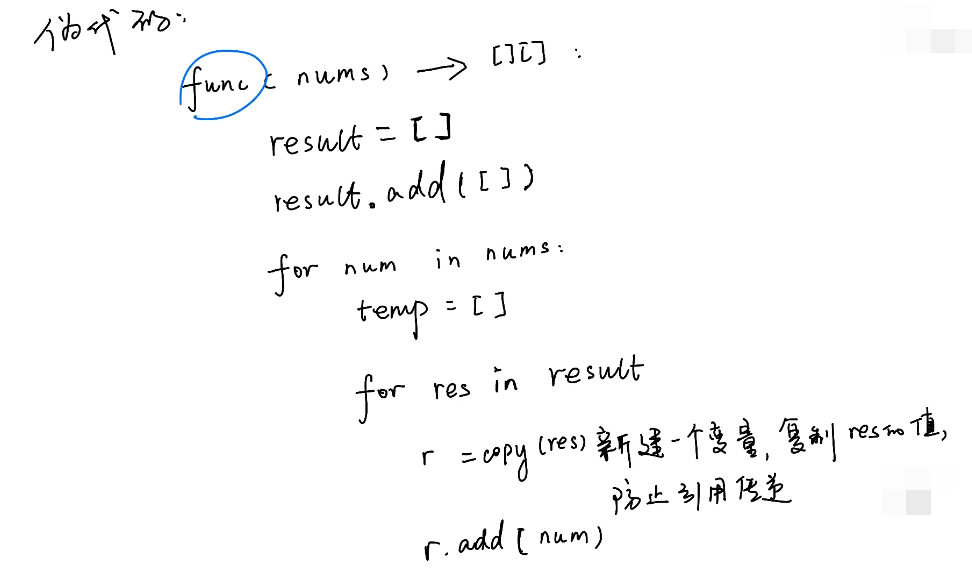 伪代码:
func(nums) → [][] :
result = []
result.add([])
for num in nums:
temp = []
for res in result
r = copy(res) 新建一个变量, 复制res的值,
防止引用传递
r.add(num)